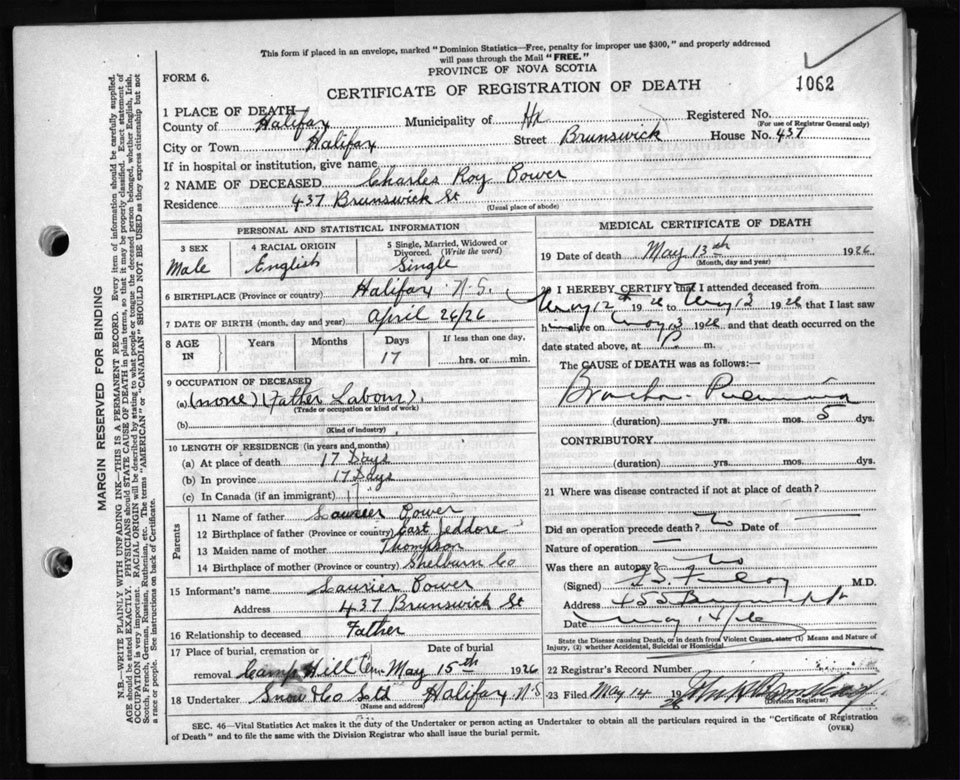 This form if placed in an envelope, marked "Dominion Statistics—Free, penalty for improper use $300," and properly addressed
will pass through the Mail "FREE."
PROVINCE OF NOVA SCOTIA
FORM 6.
CERTIFICATE OF REGISTRATION OF DEATH
1062
1 PLACE OF DEATH
County of Halifax Municipality of Hx Registered No.
(For use of Registrar General only)
City or Town Halifax Street Brunswick House No. 437
If in hospital or institution, give name
2 NAME OF DECEASED Charles Roy Power
Residence 437 Brunswick St
(Usual place of abode)
PERSONAL AND STATISTICAL INFORMATION
3 SEX Male
4 RACIAL ORIGIN English
5 Single, Married, Widowed or Divorced. (Write the word) Single
6 BIRTHPLACE (Province or country) Halifax N.S.
7 DATE OF BIRTH (month, day and year) April 26/26
8 AGE IN Years Months Days 17 If less than one day, hrs. or min.
9 OCCUPATION OF DECEASED
(a) (none) (Father Labour).
(Trade or occupation or kind of work)
(b)
(Kind of industry)
10 LENGTH OF RESIDENCE (in years and months)
(a) At place of death 17 Days
(b) In province 17 Days
(c) In Canada (if an immigrant)
Parents
11 Name of father Laurier Power
12 Birthplace of father (Province or country) East Jeddore
13 Maiden name of mother Thompson
14 Birthplace of mother (Province or country) Shelburn Co
15 Informant's name Laurier Power
Address 437 Brunswick St
16 Relationship to deceased Father
17 Place of burial, cremation or removal Camp Hill Cem Date of burial May 15th 1926
18 Undertaker Snow & Co Ltd Halifax N.S
(Name and address)
MEDICAL CERTIFICATE OF DEATH
19 Date of death May 13th 1926
(Month, day and year)
20 I HEREBY CERTIFY that I attended deceased from
May 12th 1926 to May 13 1926 that I last saw
him alive on May 13 1926, and that death occurred on the
date stated above, at m.
The CAUSE OF DEATH was as follows:
Broncho-Pneumonia
(duration) yrs. mos. 5 dys.
CONTRIBUTORY
(duration) yrs. mos. dys.
21 Where was disease contracted if not at place of death?
Did an operation precede death? No Date of —
Nature of operation —
Was there an autopsy? No
(Signed) M.D.
Address
Date May 14/26
State the Disease causing Death, or in death from Violent Causes, state (1) Means and Nature of
Injury, (2) whether Accidental, Suicidal or Homicidal.
22 Registrar's Record Number
23 Filed May 14 1926
(Division Registrar)
SEC. 46—Vital Statistics Act makes it the duty of the Undertaker or person acting as Undertaker to obtain all the particulars required in the "Certificate of Registration
of Death" and to file the same with the Division Registrar who shall issue the burial permit.
(OVER)
MARGIN RESERVED FOR BINDING
N.B.—WRITE PLAINLY WITH UNFADING INK—THIS IS A PERMANENT RECORD. Every item of information should be carefully supplied.
AGE should be stated EXACTLY. PHYSICIANS should STATE CAUSE OF DEATH in plain terms, so that it may be properly classified. Exact statement of
OCCUPATION is very important. RACIAL ORIGIN will be described by stating to what people or tongue the deceased person belonged, whether English, Irish,
Scotch, French, German, Russian, Ruthenian, etc. The terms "AMERICAN" or "CANADIAN" SHOULD NOT BE USED as they express citizenship but not
a race or people. See instructions on back of Certificate.